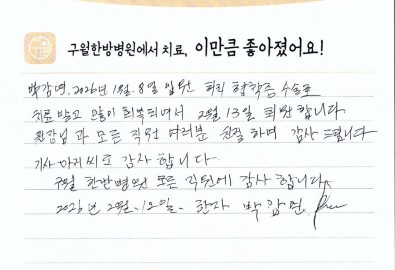 구월한방병원에서 치료, 이만큼 좋아졌어요!
박감연. 2026년 1월. 8일 입원 허리 협착증 수술로
치료 받고 으로이 회복되면서 2월 13일 퇴원 합니다
원장님과 모든 직원 여러분 친절 하며 감사 드립니다
기사 아저씨도 감사 합니다
구월 한방병원 모든 직원에 감사 합니다
2026년 2월. 12일. 환자 박감연